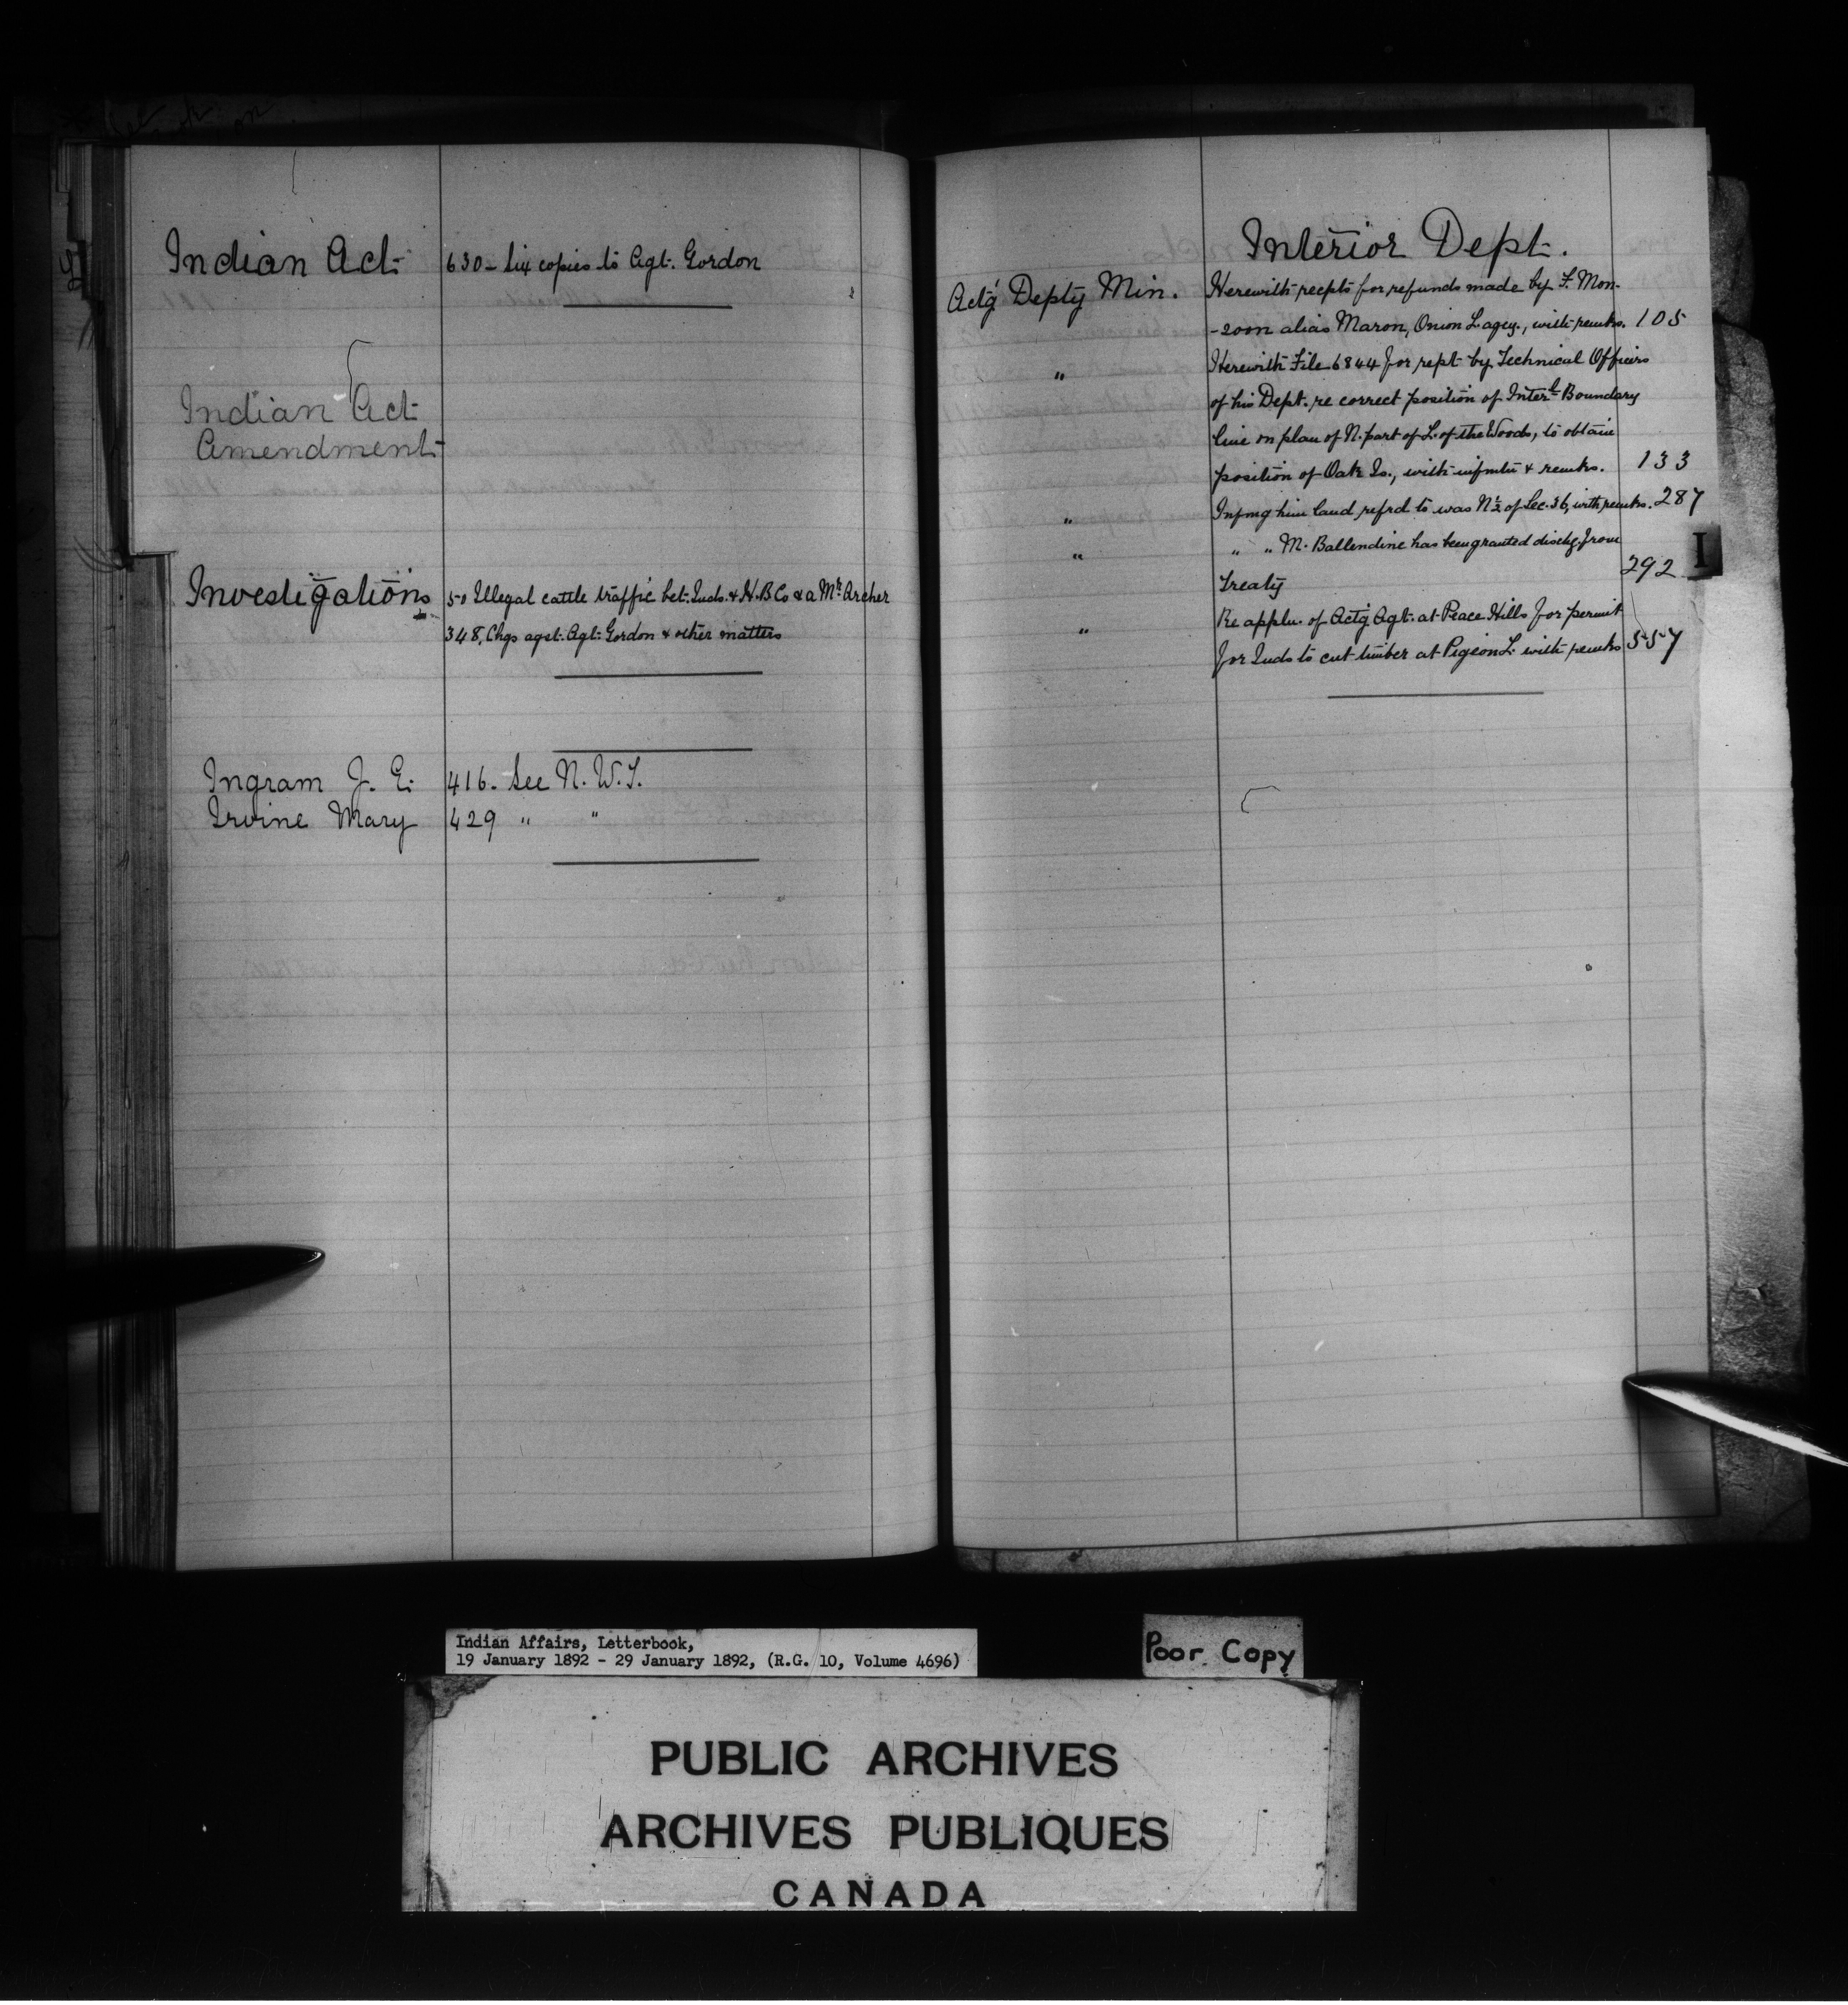 Indian Act 630 - Six copies to Agt. Gordon
Indian Act
Amendment
Investigations 50 Illegal cattle traffic bet. Inds. & H.B Co & a Mr. Archer
348, Chgs agst. Agt. Gordon & other matters
Ingram J. E. 416 - See N. W. T.
Irvine Mary 429 " "
Interior Dept.
Actg Depty Min. Herewith recpts for refunds made by F. Mon-
-zoon alias Maron, Onion L. agcy., with remks. 105
" Herewith File 6844 for rept by Technical Officers
of his Dept. re correct position of Interl Boundary
line on plan of N. part of L. of the Woods, to obtain
position of Oak Is., with infmtn & remks. 133
" Infmg him land refrd to was N ½ of Sec. 36, with remks. 287
" " " M. Ballendine has been granted dischg. from
Treaty 292
" Re appln. of Actg. Agt. at Peace Hills for permit
for Inds to cut timber at Pigeon L. with remks 557
I
Indian Affairs, Letterbook,
19 January 1892 - 29 January 1892, (R.G. 10, Volume 4696)
Poor Copy
PUBLIC ARCHIVES
ARCHIVES PUBLIQUES
CANADA